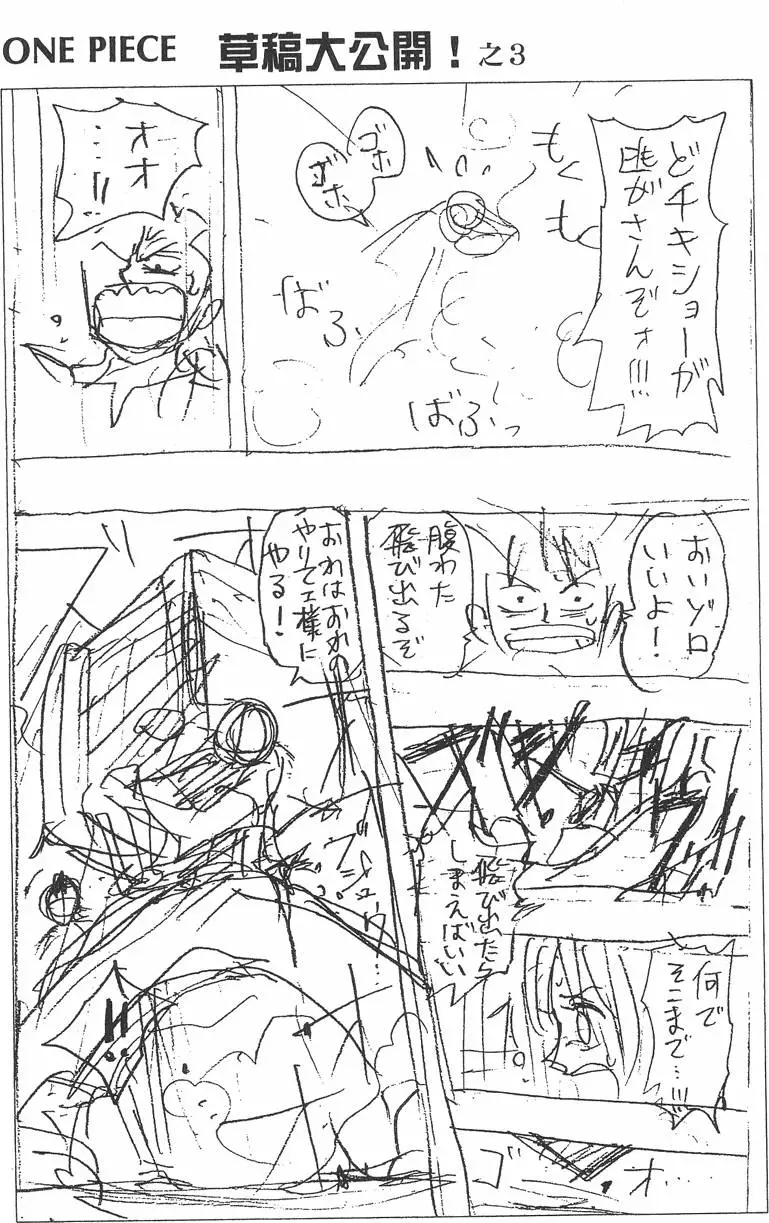 ONE PIECE 草稿大公開！之3
どチキショーが
逃がさんぞォ!!!
もくもく
ゴホ
ゴホ
ばふ
ばふっ
オオ
…!!
おいゾロ
いいよ！
腹わた
飛び出るぞ
飛び出たら
しまえばいい
何で
そこまで…!!!
ゴ
オ…
おれはおれの
やりて工様に
やる！
!!